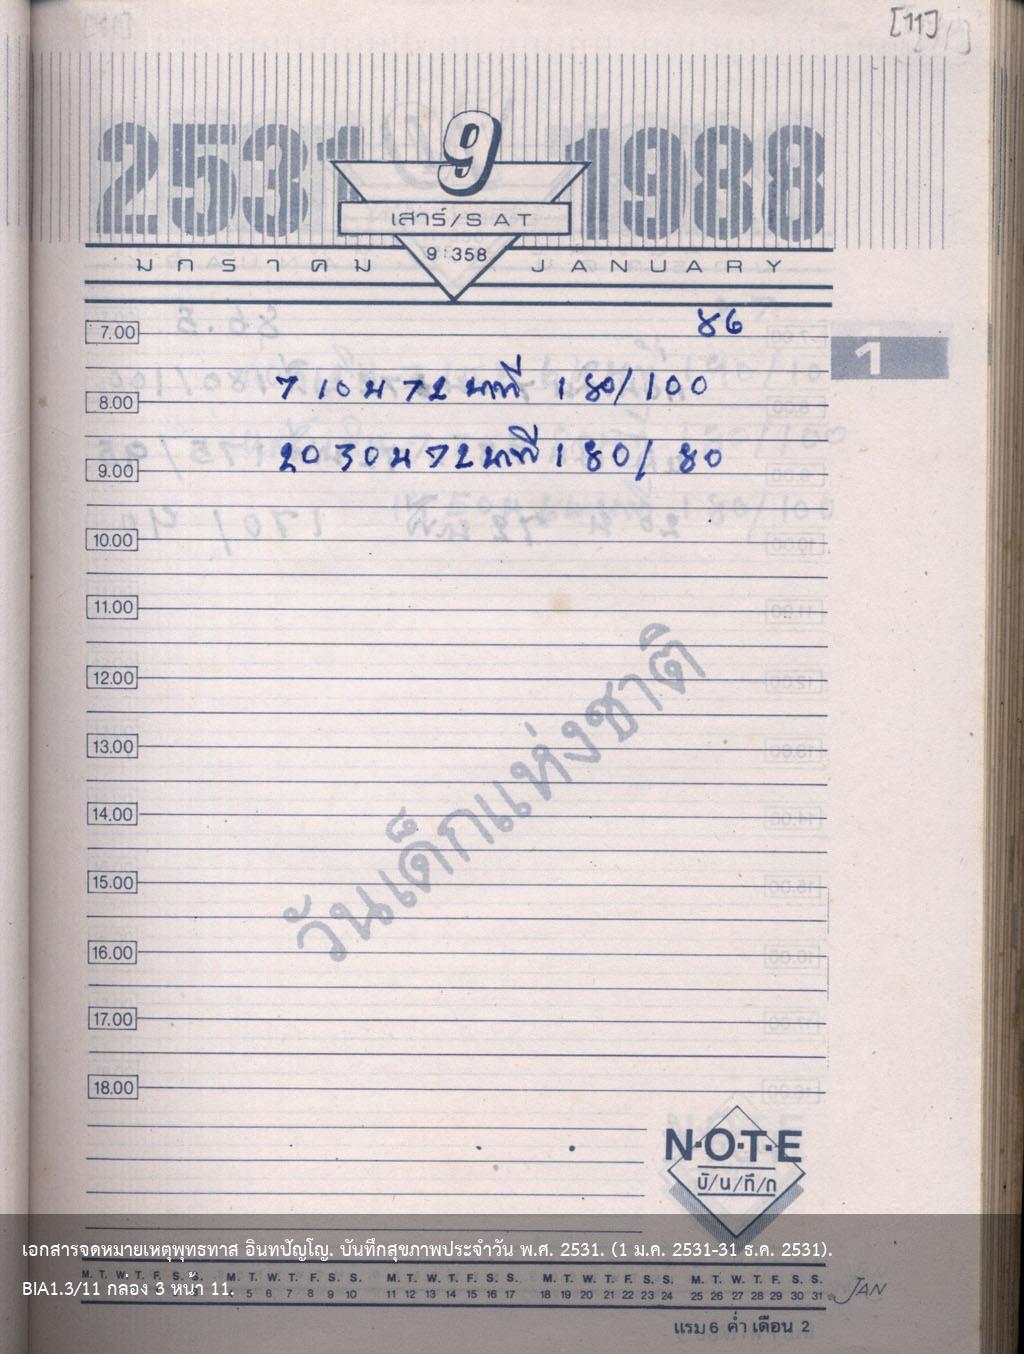 [11]
2531 9 1988
เสาร์/SAT
9:358
มกราคม JANUARY
86
7.00
1
7 10 น 72 นาที 180/100
8.00
20 30 น 72 นาที 180/80
9.00
10.00
11.00
12.00
13.00
14.00
15.00
16.00
17.00
18.00
วันเด็กแห่งชาติ
N·O·T·E
บั/น/ทึ/ก
เอกสารจดหมายเหตุพุทธทาส อินทปัญโญ. บันทึกสุขภาพประจำวัน พ.ศ. 2531. (1 ม.ค. 2531-31 ธ.ค. 2531).
M. T. W. T. F. S. S. M. T. W. T. F. S. S. M. T. W. T. F. S. S. M. T. W. T. F. S. S. M. T. W. T. F. S. S.
BIA1.3/11 กล่อง 3 หน้า 11.
5 6 7 8 9 10 11 12 13 14 15 16 17 18 19 20 21 22 23 24 25 26 27 28 29 30 31 JAN
แรม 6 ค่ำ เดือน 2